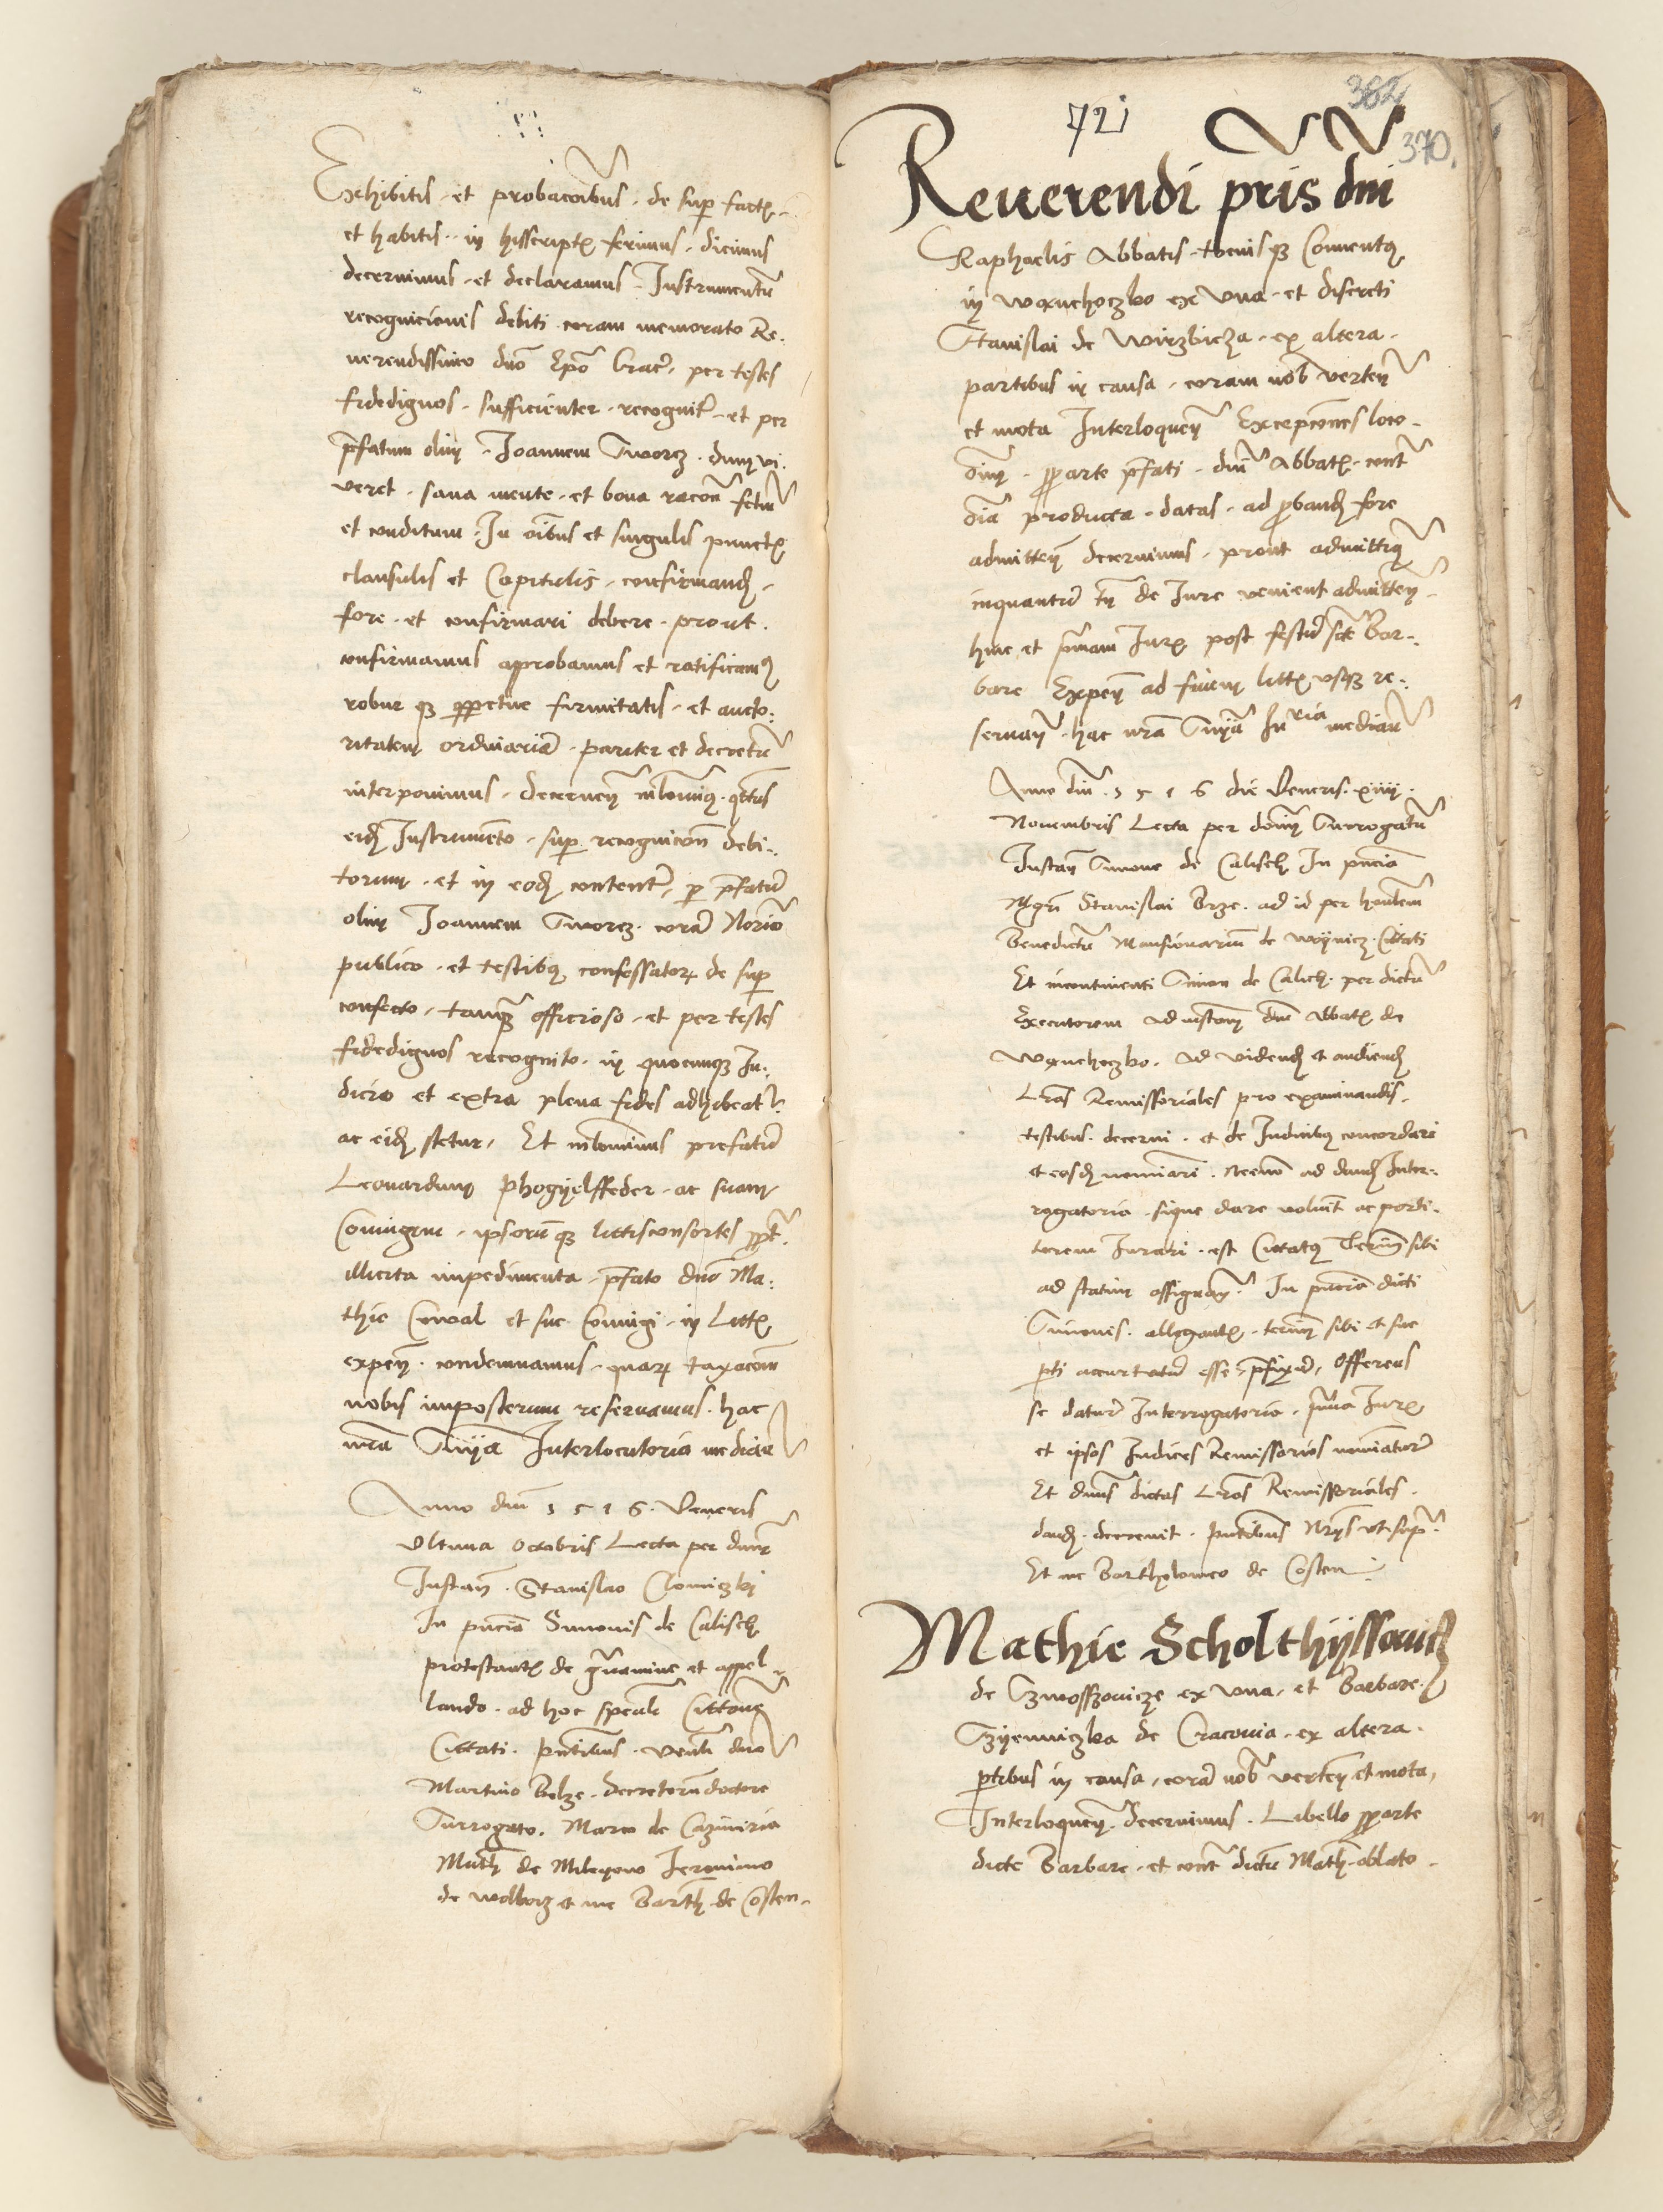 Exhibitis et probacoibus de sup factis
et habitis in hisscriptis ferimus dicimus
decernimus et declaramus Instrumentu
recognicionis debiti coram memorato Re:
uerendissimo dno Epo Crac per testes
fidedignos sufficienter recognitu et per
pfatum olim Joannem Sworcz dum vi:
veret sana mente et bona racon fctm
et conditum In oibus et singulis punctis
clausulis et Capitulis confirmand
fore et confirmari debere prout
confirmamus approbamus et ratificamus
robur qz perpetue firmitatis et aucto:
ritatem ordinaria pariter et decretu
interponimus decernen
eid Instrumento sup recognicon debi:
torum et in eod contentu p pfatu
olim Joannem Sworcz cora Norio
publico et testibus confessator de sup
confecto tanqz officioso et per testes
fidedignos recognito in quocumqz Iu:
dicio et extra plena fides adhibeat
ac eid stetur Et prefatu
Leonardum Phogyelffeder ac suam
Coniugem ipsoru qz littisconsortes ppt
illicita impedimenta pfato dno Ma:
thie Cowal et sue Coniugi in Littis
expen condemnamus quar taxacoem
nobis imposterum reseruamus hac
nra Snia Interlocutoria median
Anno dni 1516 Veneris
Vltima Octobris Lecta per dnm
Instan Stanislao Clomiczki
In pncia Simonis de Calisch
protestantis de guamine et appel
lando ad hoc speali Cittone
Cittati pntibus Venli dno
Martino Belze decretoru doctore
Surrogato Marco de Cazimiria
Math de Mileyow Jeronimo
de Wolborz et me Barth de Costen
72j
362
370
Reuerendi pris dni
Raphaelis Abbatis toeiusqz Conuentus
in Wanchoczko ex vna et discreti
Stanislai de Wirzbicza ex altera
partibus in causa coram nob verten
et mota Interloquen Excepcoes loco
pparte pfati dni Abbatis cont
dia producta datas ad pband fore
admitten decernimus prout admittimus
inquantu tn de Jure venient admitten
hinc et pmam Iuris post festu scte Bar:
bare Expen ad finem littis vsqz re:
seruan hac nra Snia Inria median
Anno dni 1516 die Veneris xiiij
Nouembris Lecta per doim Surrogatu
Instan Simone de Calisch In pncia
Mgri Stanislai Brze ad id per honlem
Benedictu Mansionarium de Woynicz Cittati
Et incontinenti Simon de Calich per dictu
Executorem ad instam dni Abbatis de
Wanchoczko Ad vidend et audiend
Lras Remissoriales pro examinandis
testibus decerni et de Iudicibus concordari
et eosd nominari Necno ad dand Inter:
rogatoria sique dare voluit ac porti:
torem Iurari est Cittatus Terim sibi
ad statim assignan In pncia dicti
Simonis allegantis termn sibi et sue
pti accurtatu esse pfixu Offerens
se daturu Interrogatoria pma Iuris
et ipsos Iudices Remissorios nominaturu
Et dnus dictas Lras Remissoriales
dand decreuit pntibus Nriis vt sup
Et me Bartholomeo de Costen
Mathie Scholthyssowicz
de Szwosszowicze ex vna et Barbare
Szyenniczka de Cracouia ex altera
ptibus in causa cora nob verten et mota
Interloquen decernimus Libello pparte
dicte Barbare et cont dictu Math oblato